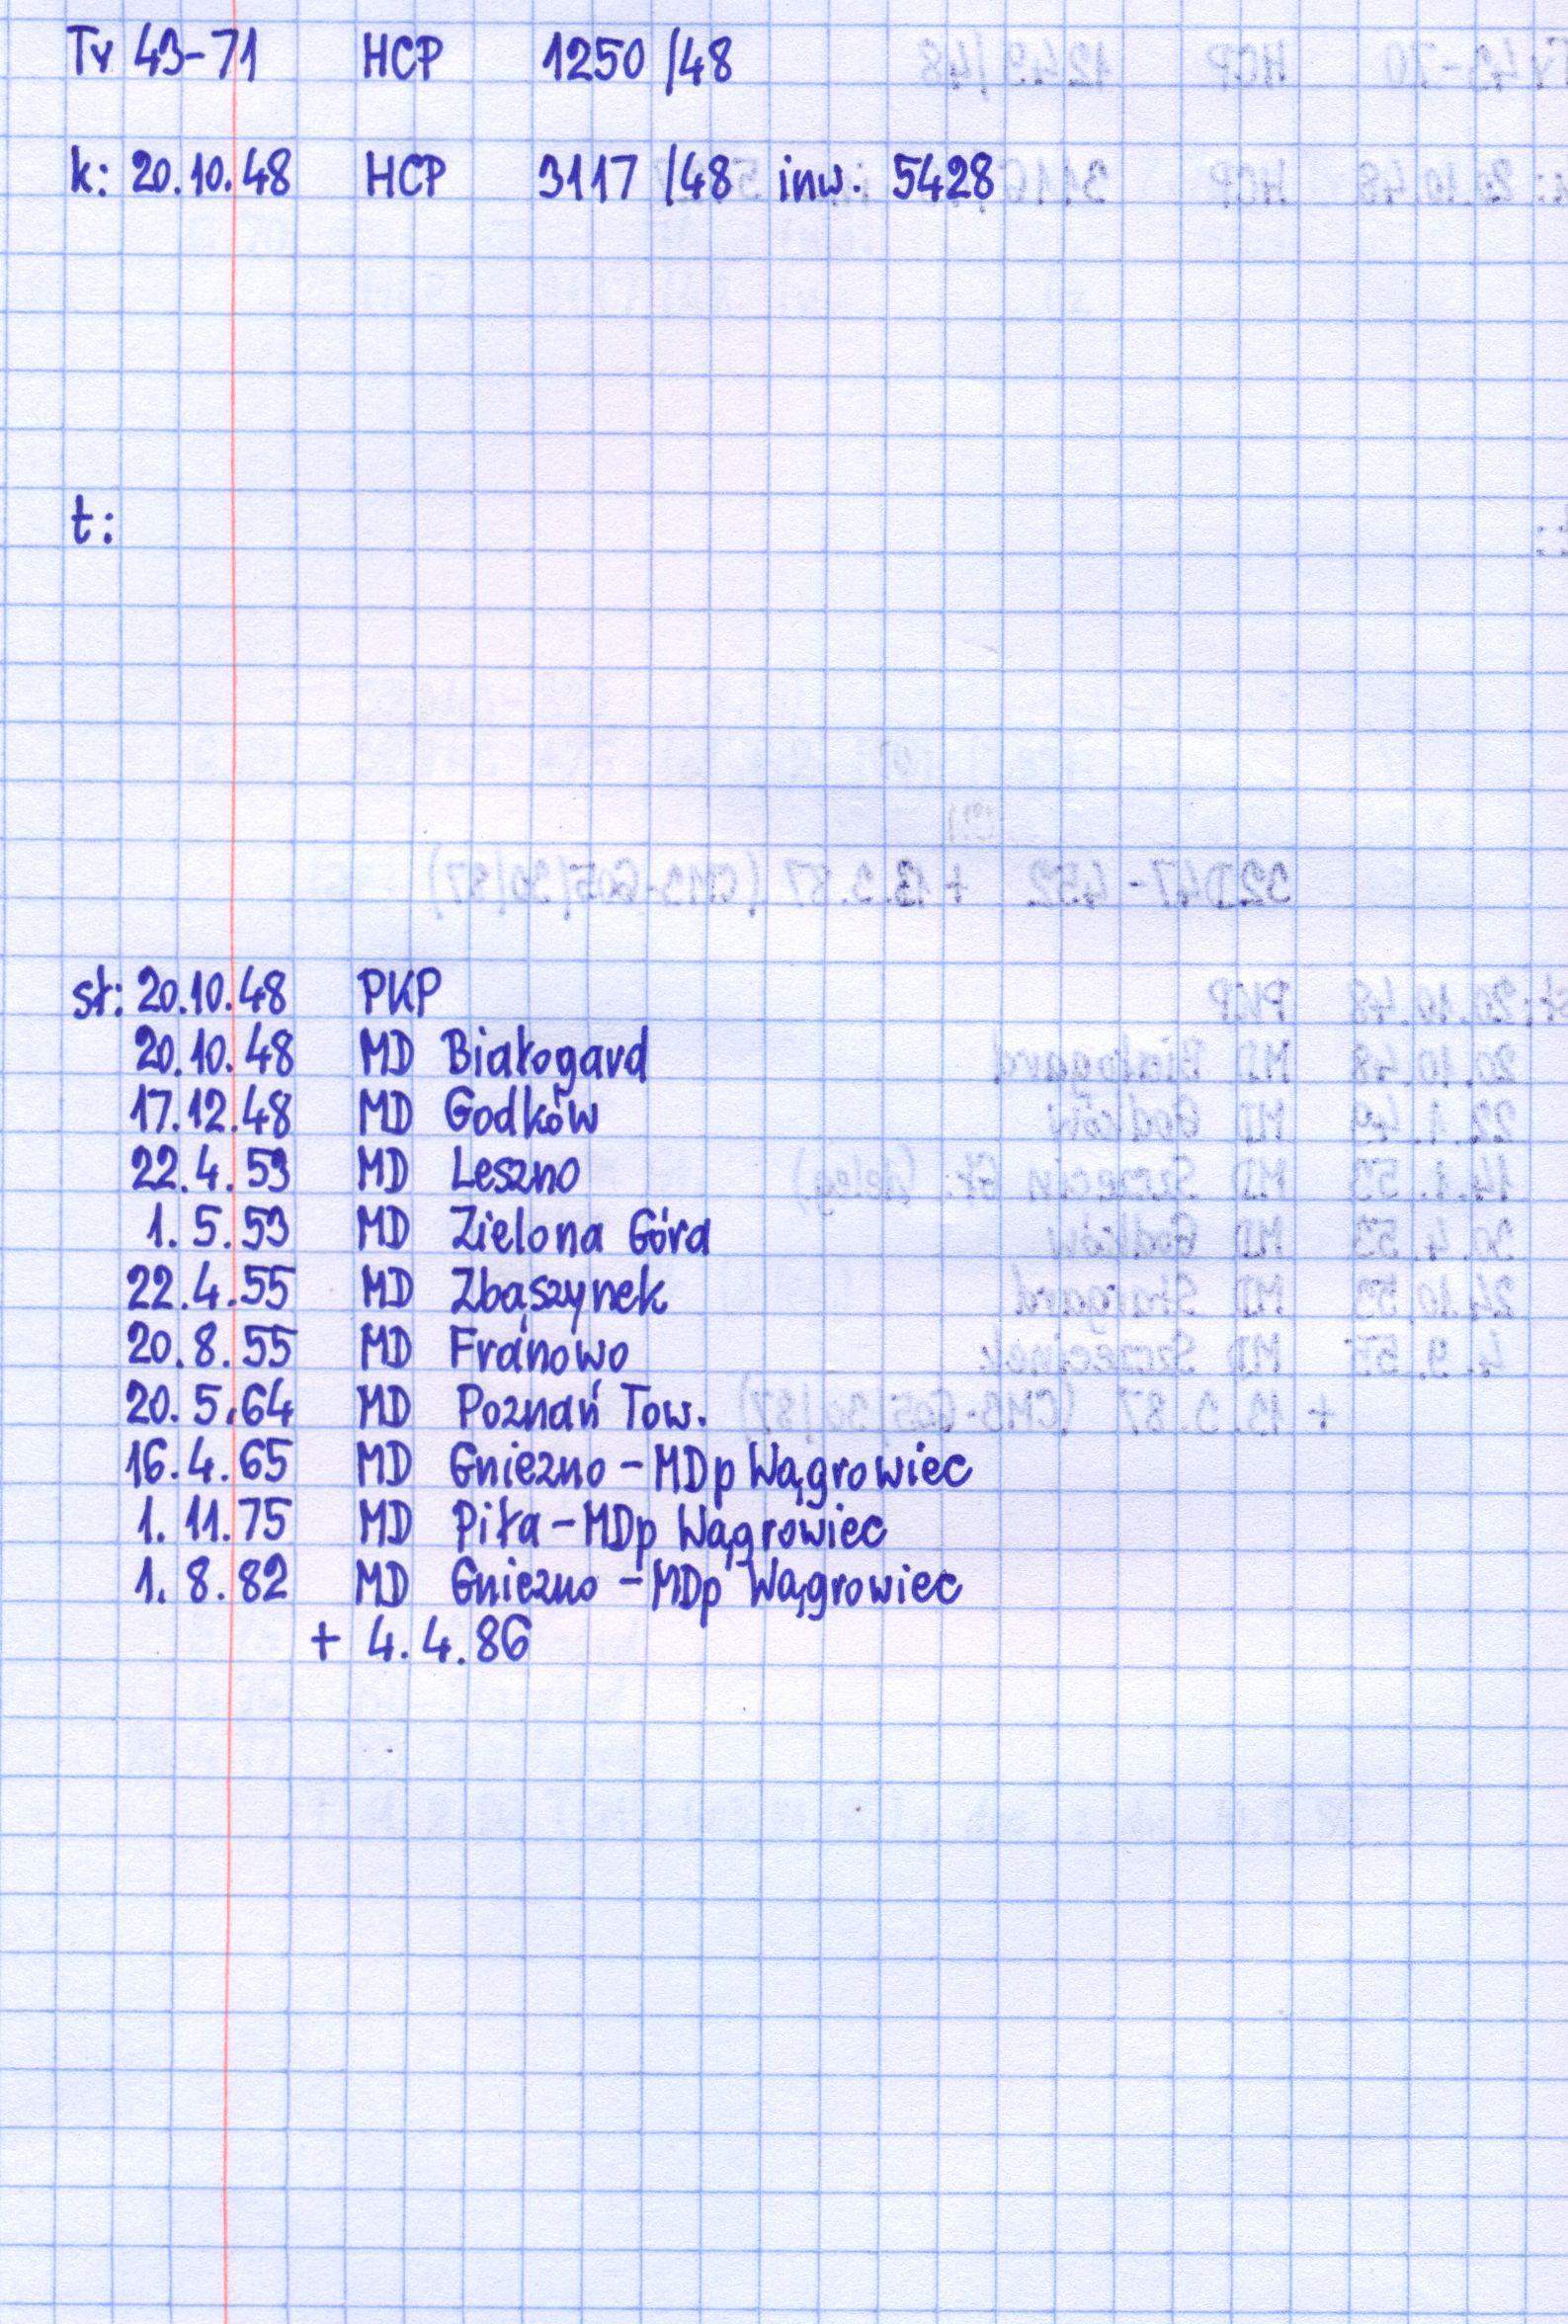 Ty 43-71 HCP 1250 /48
k: 20.10.48 HCP 3117 /48 inw. 5428
t:
st: 20.10.48 PKP
20.10.48 MD Białogard
17.12.48 MD Godków
22.4.53 MD Leszno
1.5.53 MD Zielona Góra
22.4.55 MD Zbąszynek
20.8.55 MD Franowo
20.5.64 MD Poznań Tow.
16.4.65 MD Gniezno - MDp Wągrowiec
1.11.75 MD Piła - MDp Wągrowiec
1.8.82 MD Gniezno - MDp Wągrowiec
+ 4.4.86